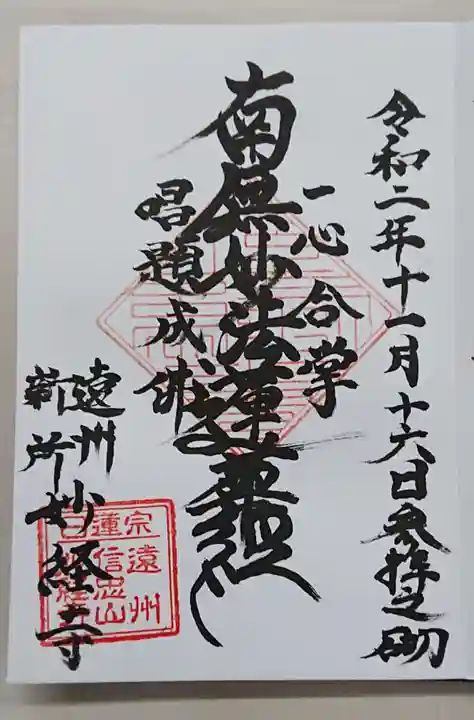 令和二年十一月十六日参拝之砌
一心合掌
南無妙法蓮華経
唱題成佛
遠州
新所
妙経寺
宗遠州
蓮信忠山
日妙経寺